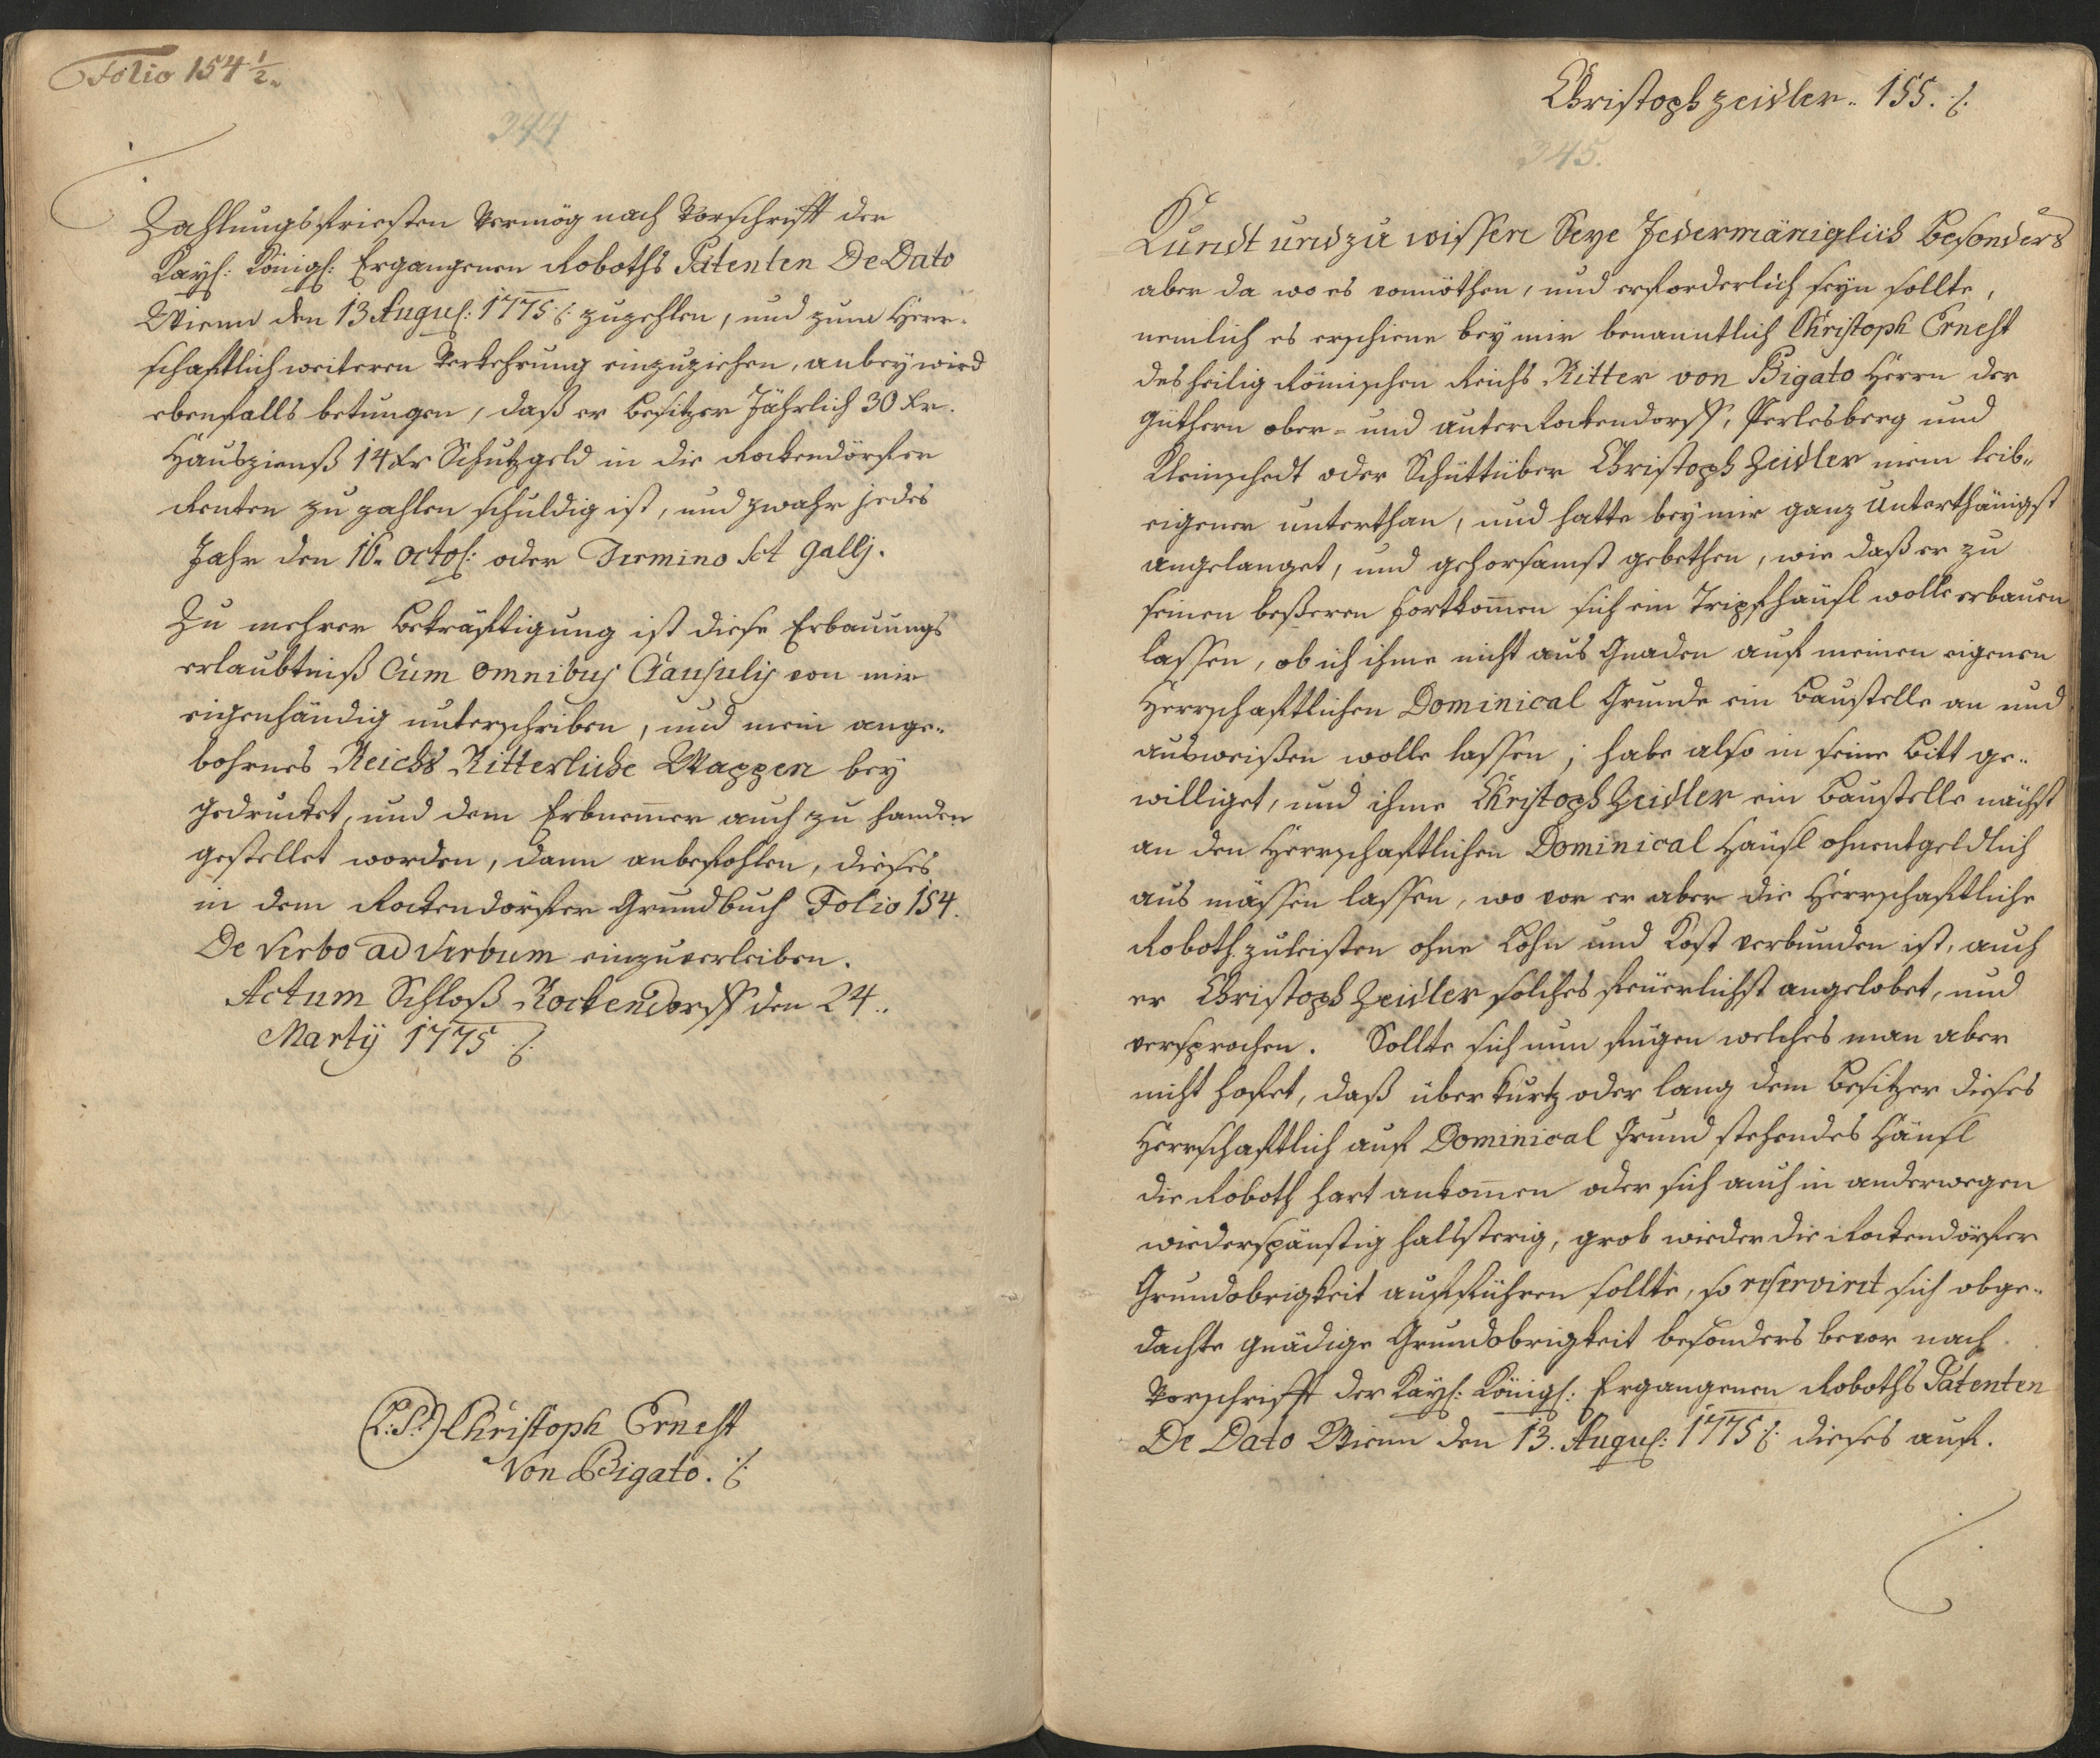 Folio 154 1/2.
344
Zahlungsfriesten Vermög nach Vorschrifft der
Kays: Königs: Ergangenen Roboths Patenten De Dato
Wienn den 13 Augus: 1775 ∙/. zuzehlen, und zum Herr-
schafftlich weiteren Verkehrung einzuziehen, anbey wird
ebenfalls betungen, daß er Besitzer Jährlich 30 Kr.
Hauszienß 14 Kr Schutzgeld in die Rockendörfer
Renten zu zahlen schuldig ist, und zwahr jedes
Jahr den 16. octo: oder Termino Sct Gallj.
Zu mehrer Bekräfftigung ist diese Erbauungs
erlaubtniß Cum omnibus Clausulis von mir
eigenhändig unterschriben, und mein ange-
bohrnes Reichs Ritterliche Wappen bey
gedrucket, und dem Erbnemmer auch zu handen
gestellet worden, dann anbefohlen, dieses
in dem Rockendörfer Grundbuch Folio 154.
De Verbo ad Verbum einzuverleiben.
Actum Schloß Rockendorff den 24..
Martÿ 1775 ∙/.
(L:S:) Christoph Ernest
Von Bigato. ∙/.
Christoph Zeidler.. 155. ∙/.
345.
Kundt und zu wissen Seye Jedermäniglich Besonders
aber da wo es vonnöthen, und erforderlich seyn sollte,
nemlich es erschiene bey mir benanntlich Christoph Ernest
des heilig Römischen Reichs Ritter von Bigato Herrn der
Güthern ober- und unter Rockendorff, Perlesberg und
Kleinschedt oder Schüttüber Christoph Zeidler mein leib-
eigener unterthan, und hatte bey mir ganz unterthänigst
angelanget, und gehorsamst gebethen, wie daß er zu
seinen beßeren Fortkommen sich ein Tripfhäusl wolle erbauen
lassen, ob ich ihme nicht aus Gnaden auf meinen eigenen
Herrschafftlichen Dominical Grunde ein Baustelle an und
ausweißen wolle lassen; habe also in seine Bitt ge-
williget, und ihme Christoph Zeidler ein Baustelle nächst
an den Herrschafftlichen Dominical Häusl ohnentgeldlich
aus mässen lassen, wo vor er aber die Herrschafftliche
Roboth zuleisten ohne Lohn und Kost verbunden ist, auch
er Christoph Zeidler solches feüerlichst angelobet, und
versprochen. Sollte sich nun fügen welches man aber
nicht hofet, daß über kurtz oder lang dem Besitzer dieses
Herrschafftlich auf Dominical Grund stehendes Häusl
die Roboth hart ankommen oder sich auch in anderwegen
wiederspänstig halssterig, grob wieder die Rockendörfer
Grundobrigkeit aufführen sollte, so reserviret sich obge-
dachte gnädige Grundobrigkeit besonders bevor nach
Vorschrifft der Kays: Königs: Ergangenen Roboths Patenten
De Dato Wienn den 13. Augus: 1775 ∙/. dieses auf.